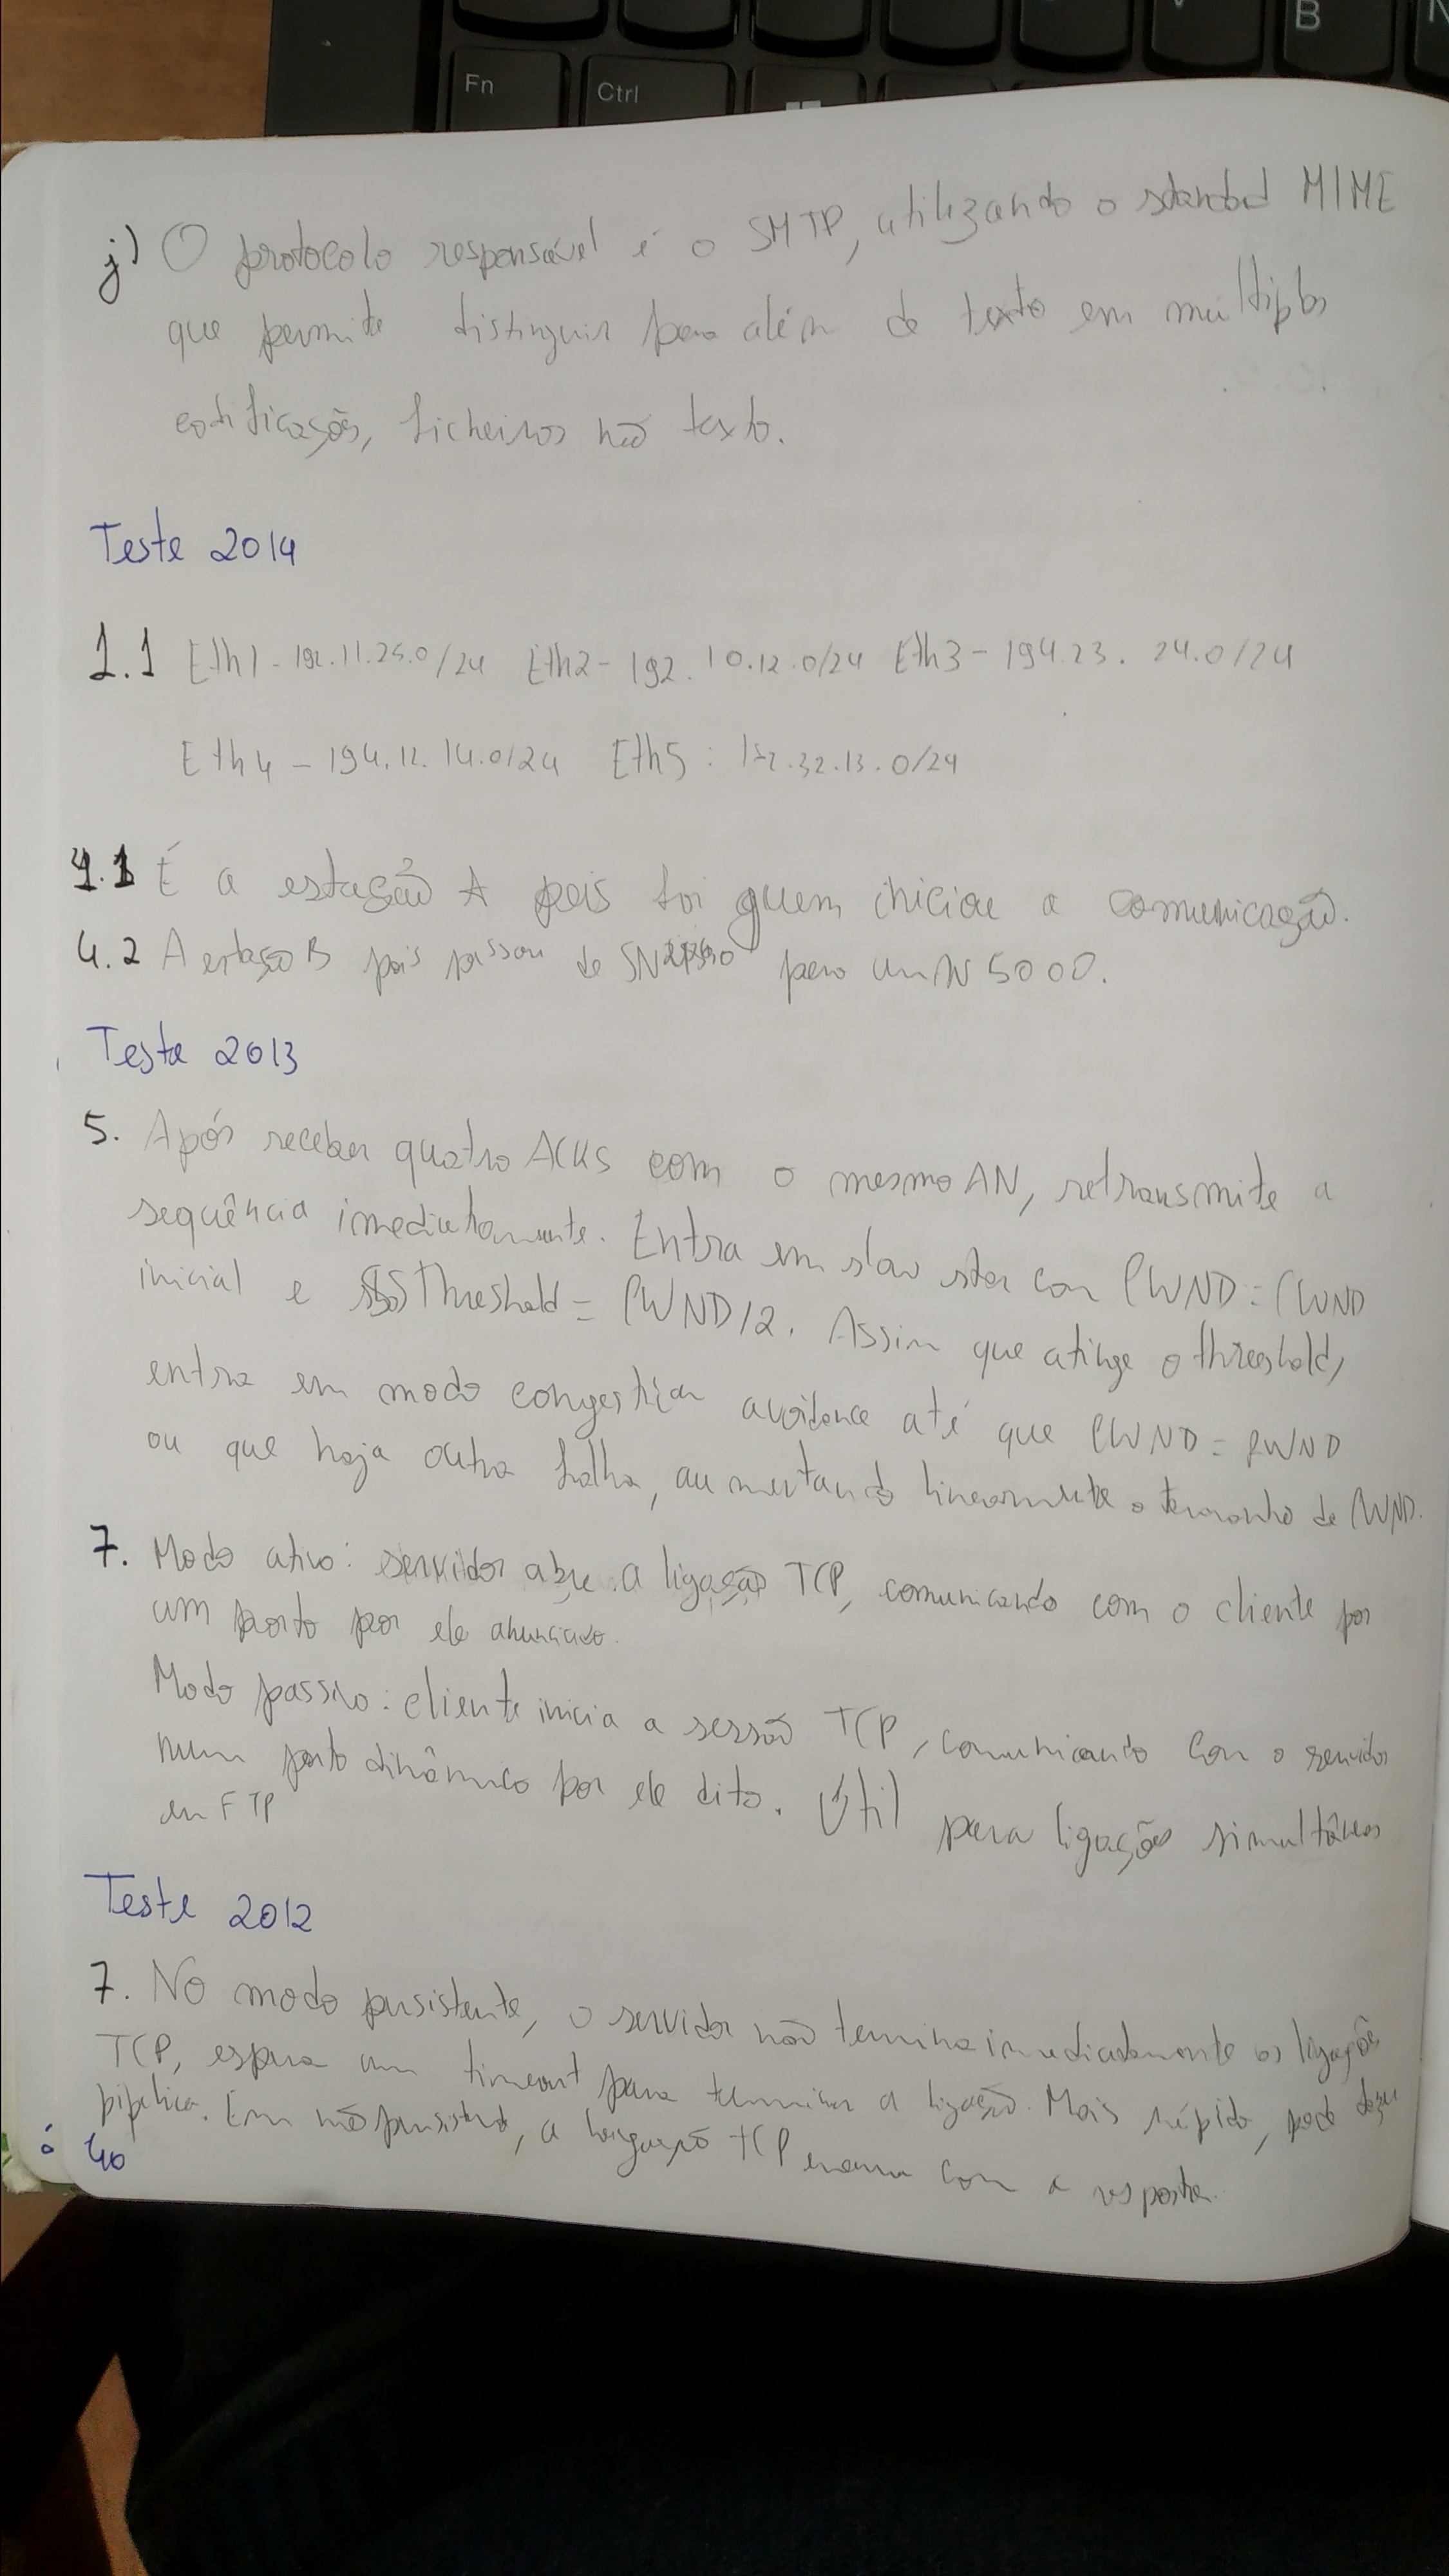 Fn Ctrl V B
j) O protocolo responsável é o SMTP, utilizando o standard MIME
que permite distinguir para além de texto em múltiplas
codificações, ficheiros não texto.
Teste 2014
1.1 Eth1 - 192.11.25.0/24 Eth2 - 192.10.12.0/24 Eth3 - 194.23.24.0/24
Eth4 - 194.12.14.0/24 Eth5 : .32.13.0/24
4.1 É a estação A pois foi quem iniciou a comunicação.
4.2 A estação B pois passou de SN para um 5000.
Teste 2013
5. Após receber quatro ACKS com o mesmo AN, retransmite a
sequência imediatamente. Entra em slow star com CWND = CWND
inicial e SSThreshold = CWND/2. Assim que atinge o threshold,
entra em modo congestion avoidance até que CWND = RWND
ou que haja outra falha, aumentando linearmente o tamanho de CWND.
7. Modo ativo: servidor abre a ligação TCP, comunicando com o cliente por
um porto por ele anunciado.
Modo passivo: cliente inicia a sessão TCP, comunicando com o servidor
num porto dinâmico por ele dito. Útil para ligações simultâneas
em FTP
Teste 2012
7. No modo persistente, o servidor não termina imediatamente as ligações
TCP, espera um timeout para terminar a ligação. Mais rápido, pode fazer
pipeline. Em não persistent, a ligação TCP encerra com a resposta.
40